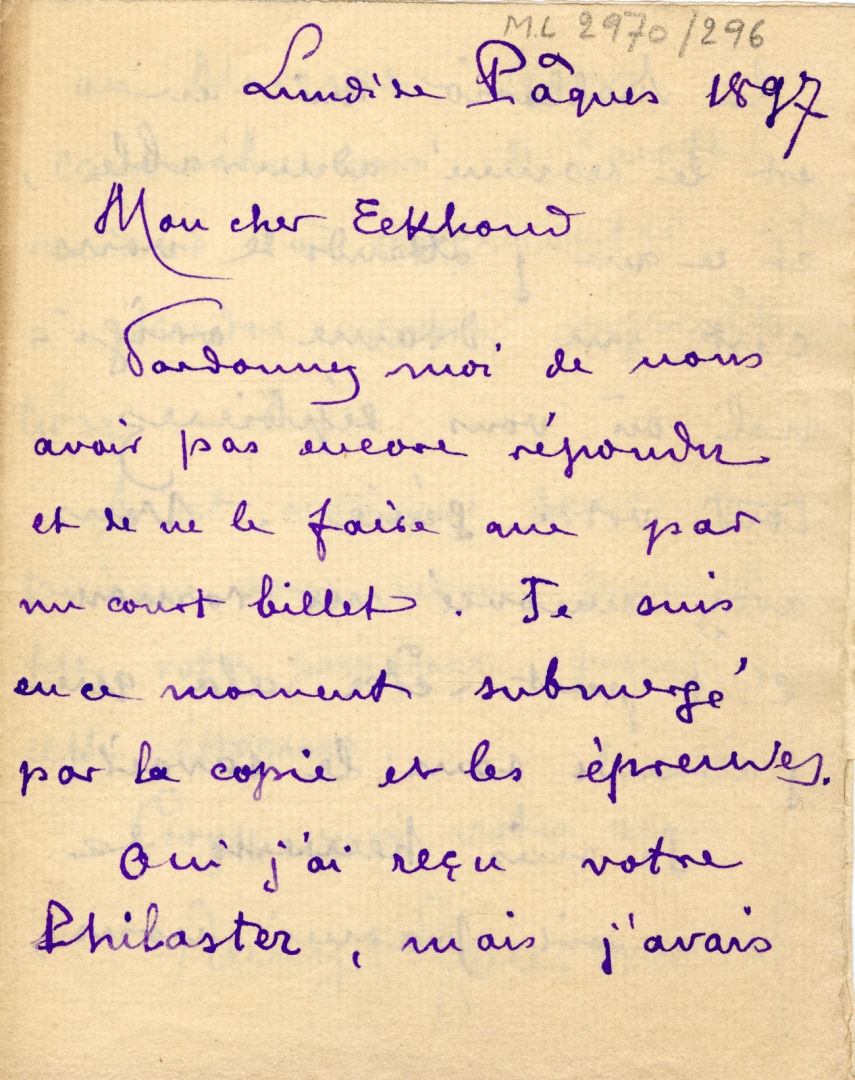 M.L 2970/296
Lundi de Pâques 1897
Mon cher Eekhoud
Pardonnez moi de vous
avoir pas encore répondu
et de ne le faire que par
un court billet. Je suis
en ce moment submergé
par la copie et les épreuves.
Oui j'ai reçu votre
Philaster, mais j'avais